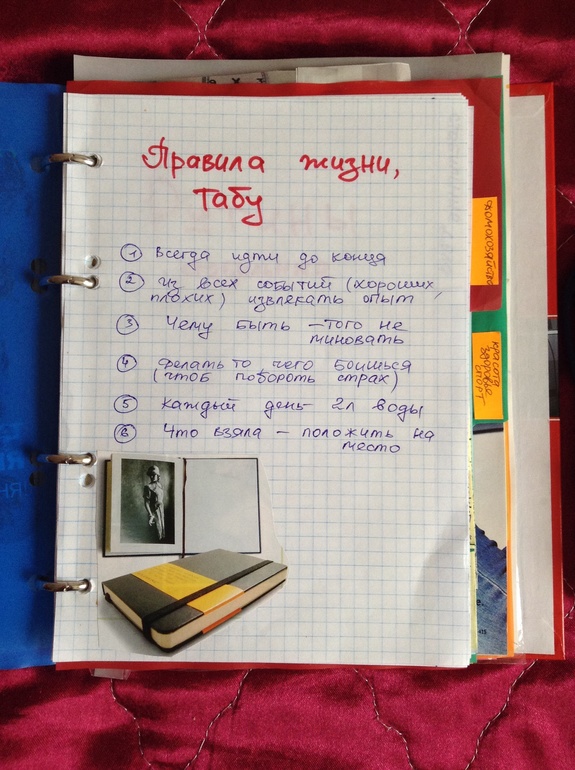 Правила жизни,
табу
1 Всегда идти до конца
2 из всех событий (хороших,
плохих) извлекать опыт
3 Чему быть – того не
миновать
4 Делать то чего боишься
(чтоб побороть страх)
5 Каждый день 2л воды
6 Что взяла – положить на
место
домохозяйство
красота
здоровье
спорт